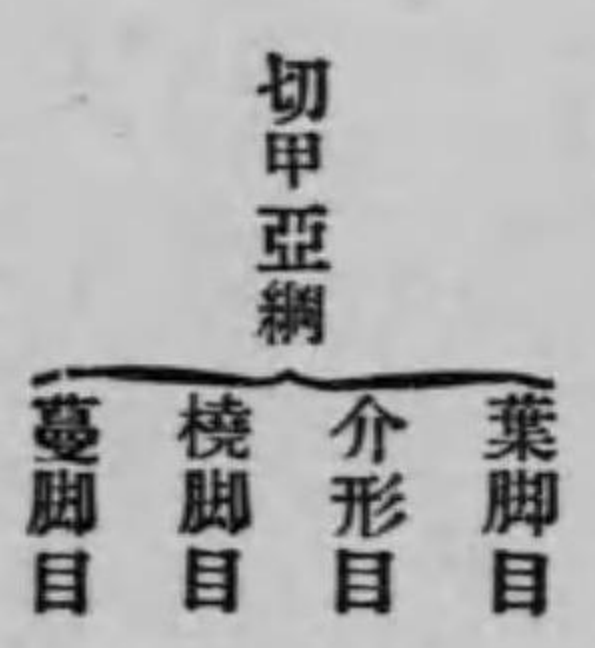 切甲亞綱
葉脚目
介形目
橈脚目
蔓脚目